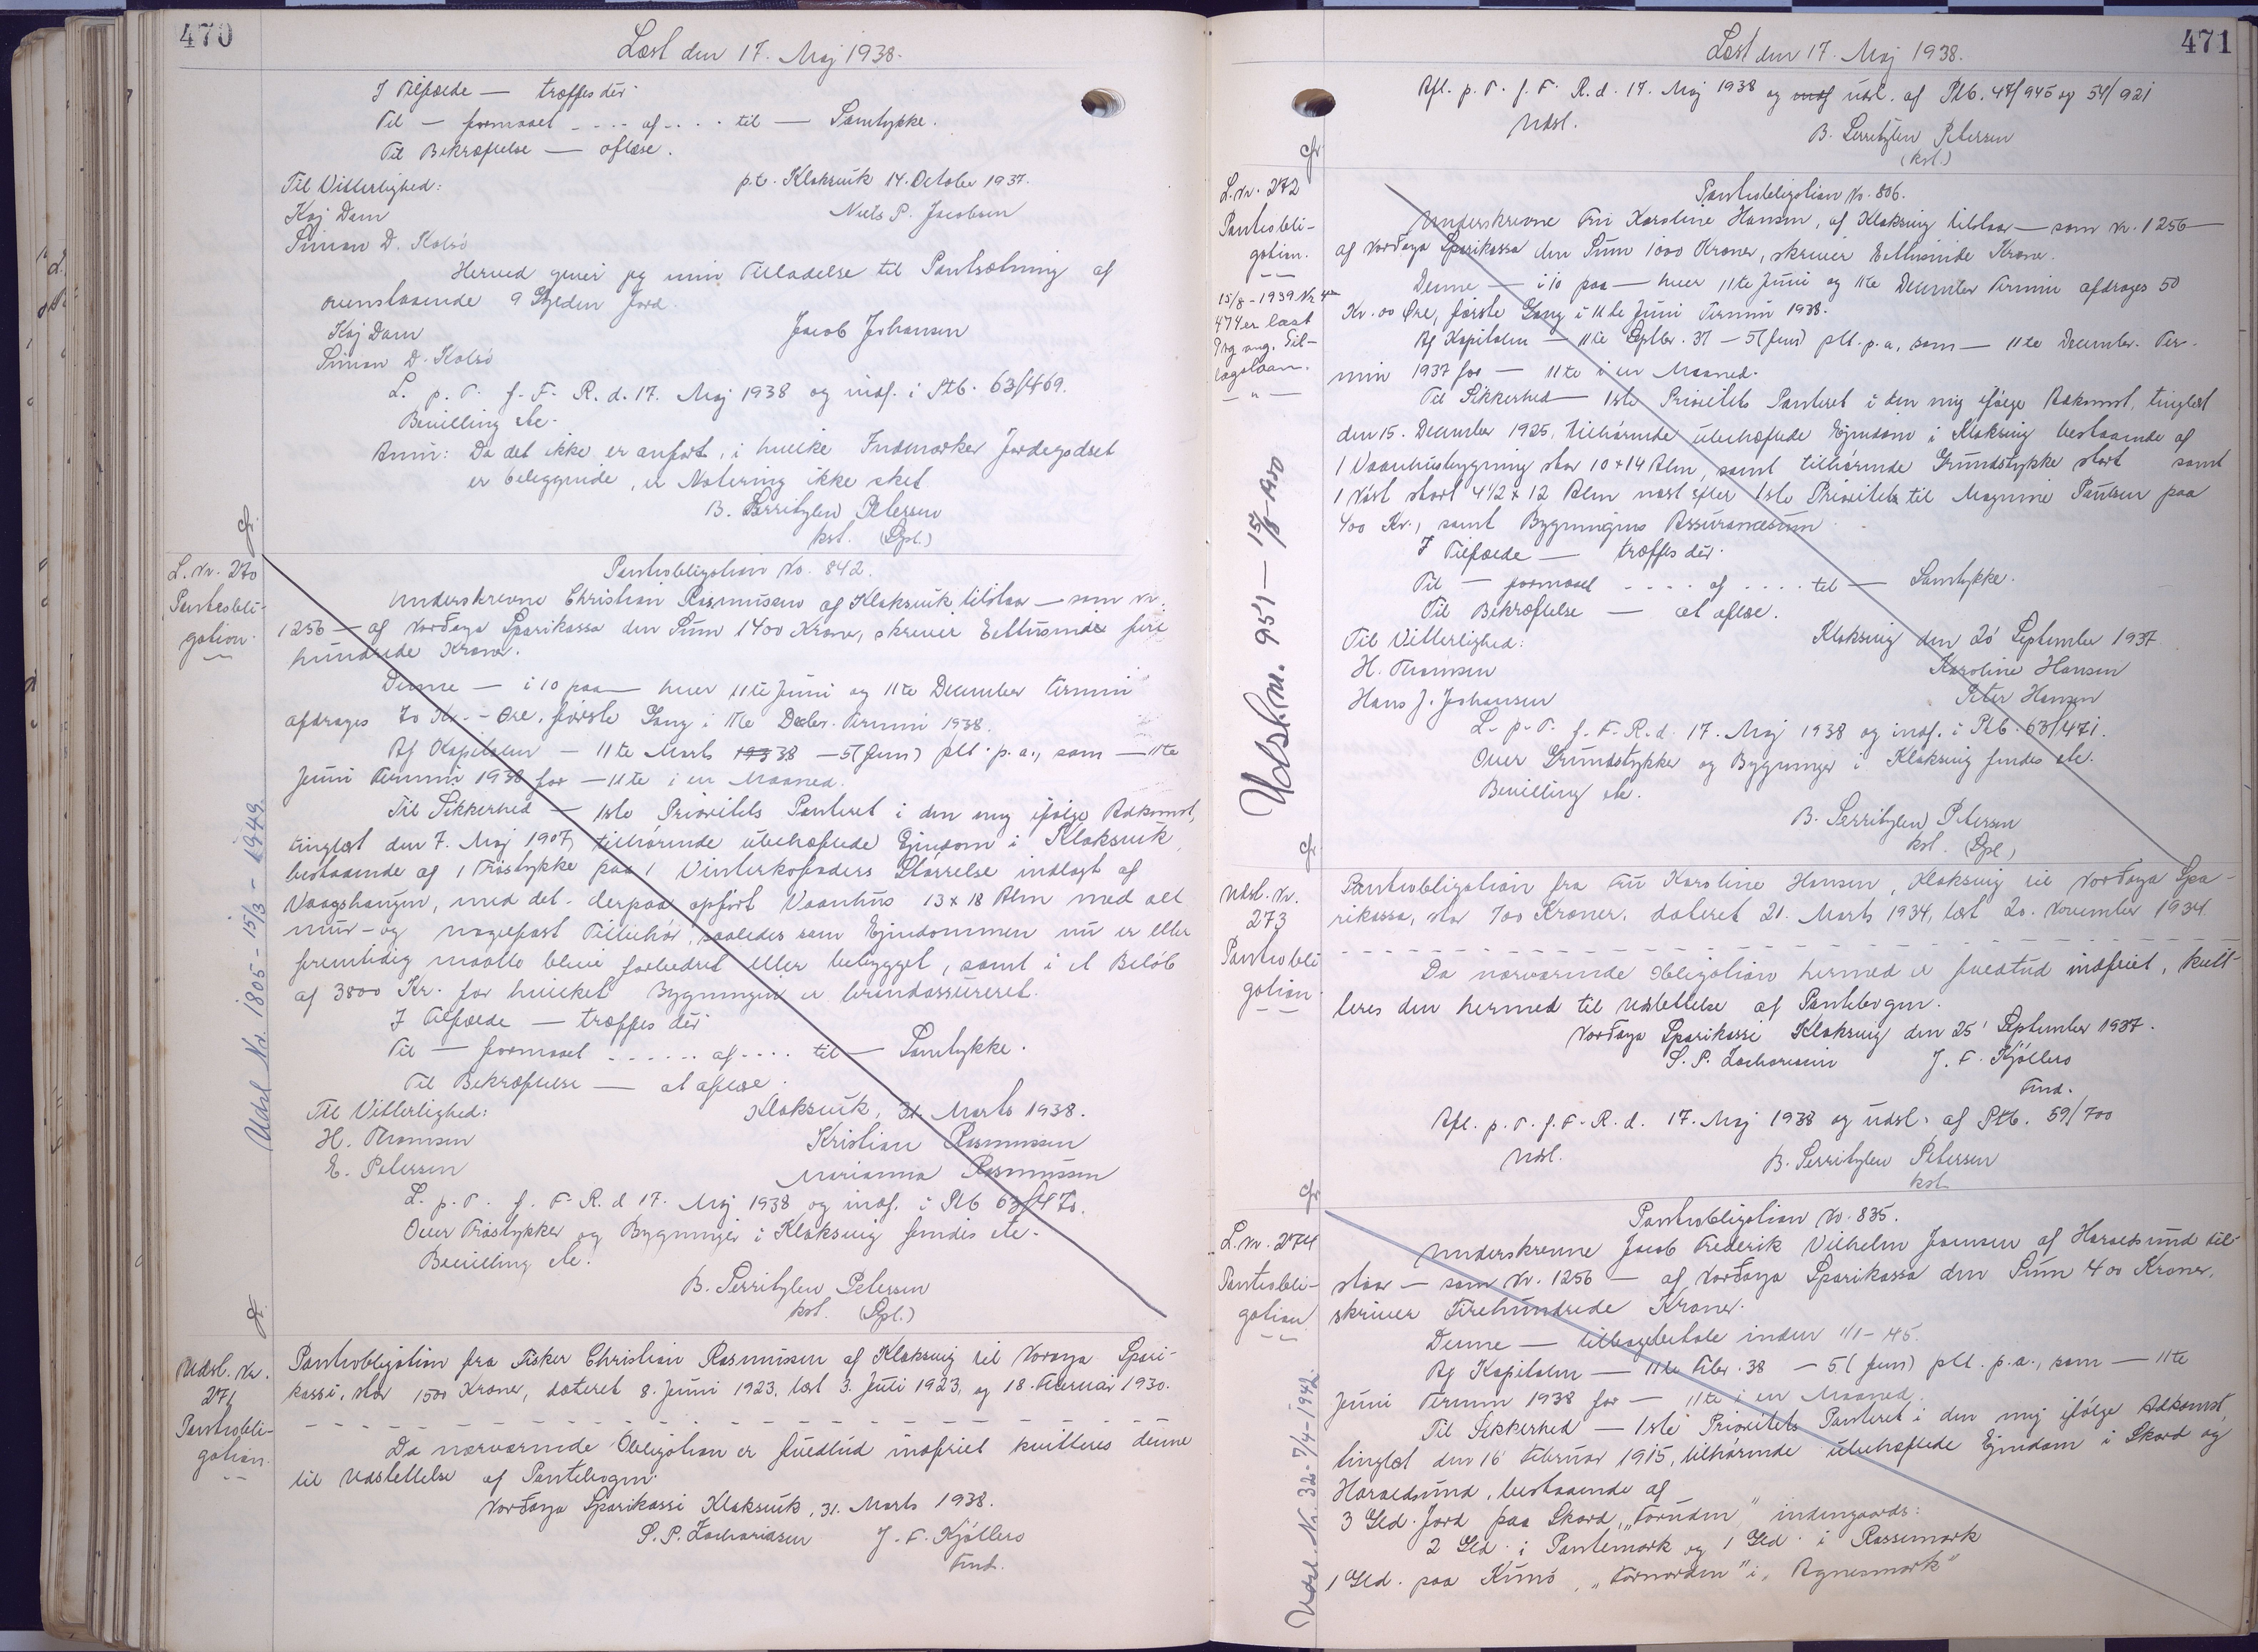 470
Læst den 17. Maj 1938.
I Tilfælde — træffes dér.
Til — formaael - - - - af - - - - til — Samtykke.
Til Bekræftelse — aflæse.
Til Vitterlighed:
p.t. Klaksvik 14. October 1937.
Kaj Dam
Niels P. Jacobsen
Simon D. Kalsø
Herved giver jeg min Tilladelse til Pantsætning af
ovenstaaende 9 Gylden Jord.
Kaj Dam
Jacob Johansen
Simon D. Kalsø
L. p. T. f. F. R. d. 17. Maj 1938 og indf. i Ptb. 63/469.
Bevilling etc.
Anm: Da det ikke er anført, i hvilke Indmarker Jordegodset
er beliggende, er Notering ikke sket
B. Serritzlew Petersen
kst. (Spl.)
cfr.
L. Nr. 270
Pantobli-
gation.
Pantobligation No. 842.
Underskrevne Christian Rasmussen af Klaksvik tilstaar — som Nr.
1256 — af Norðoya Sparikassa den Sum 1400 Kroner, skriver Ettusinde fire
hundrede Kroner.
Denne — i 10 paa — hver 11te Juni og 11te December Termin
afdrages 70 Kr. - Øre, første Gang i 11te Decbr. Termin 1938.
Af Kapitalen — 11te Marts 1938 — 5 (fem) pCt. p.a., som — 11te
Juni Termin 1938 for — 11te i en Maaned.
Til Sikkerhed — 1ste Prioritets Panteret i den mig ifølge Adkomst,
tinglæst den 7. Maj 1907, tilhørende ubehæftede Ejendom i Klaksvik,
bestaaende af 1 Trøstykke paa 1 Vinterkofoders Størrelse indlagt af
Vaagshaugen, med det derpaa opført Vaanhus 13 x 18 Alen med alt
mur- og nagelfast Tilbehør, saaledes som Ejendommen nu er eller
fremtidig maatte blive forbedret eller bebygget, samt i et Beløb
af 3800 Kr. for hvilket Bygningen er brandassureret.
I Tilfælde — træffes dér
Til — formaael - - - - - - af - - - - til — Samtykke.
Til Bekræftelse — at aflæse.
Til Vitterlighed:
Klaksvik, 31. Marts 1938.
H. Thomsen
Kristian Rasmussen
E. Petersen
Marianna Rasmussen
L. p. T. f. F. R. d 17. Maj 1938 og indf. i Ptb 63/470.
Over Trøstykker og Bygninger i Klaksvig findes etc.
Bevilling etc.
B. Serritzlew Petersen
kst. (Spl.)
Udsl. Nr. 1805 - 15/3 - 1949.
cfr.
Udsl. Nr.
271
Pantobli-
gation.
Pantobligation fra Fisker Christian Rasmussen af Klaksvig til Noroya Spari-
kassi, stor 1500 Kroner, dateret 8. Juni 1923, læst 3. Juli 1923, og 18. Februar 1930.
Da nærværende Obligation er fuldtud indfriet kvitteres denne
til Udslettelse af Pantebogen.
Norðoya Sparikassi Klaksvik, 31. Marts 1938.
S. P. Zachariasen J. F. Kjølbro
Fmd.
471
Læst den 17. Maj 1938.
Afl. p. T. f. F. R. d. 17. Maj 1938 og indf udsl. af Ptb. 47/945 og 54/921
Udsl.
B. Serritzlew Petersen
(kst.)
cfr.
L. Nr. 272
Pantobli-
gation.
15/8 - 1939 Nr
474 er læst
Ptg ang. Til-
lægslaan.
Pantobligation No. 806.
Underskrevne Fru Karoline Hansen, af Klaksvig tilstaar — som Nr. 1256 —
af Norðoya Sparikassa den Sum 1000 Kroner, skriver Ettusinde Kroner.
Denne — i 10 paa — hver 11te Juni og 11te December Termin afdrages 50
Kr. 00 Øre, første Gang i 11te Juni Termin 1938.
Af Kapitalen — 11te Septbr. 37 — 5 (fem) pCt. p.a, som — 11te December Ter-
min 1937 for — 11te i en Maaned.
Til Sikkerhed — 1ste Prioritets Panteret i den mig ifølge Adkomst, tinglæst
den 15. December 1925, tilhørende ubehæftede Ejendom i Klaksvig bestaaende af
1 Vaanhusbygning stor 10 x 14 Alen, samt tilhørende Grundstykke stort samt
1 Nøst stort 4 1/2 x 12 Alen næst efter 1ste Prioritet til Magnine Paulsen paa
400 Kr., samt Bygningens Assurancesum
I Tilfælde — træffes dér.
Til — formaael - - - - af - - - - til — Samtykke.
Til Bekræftelse — at aflæse.
Til Vitterlighed:
Klaksvig den 20' September 1937
H. Thomsen
Karoline Hansen
Hans J. Johansen
Peter Hansen
L. p. T. f. F. R. d. 17. Maj 1938 og indf. i Ptb. 63/471.
Over Grundstykker og Bygninger i Klaksvig findes etc.
Bevilling etc.
B. Serritzlew Petersen
kst. (Spl.)
Udsl. nr. 951 — 15/8 - 1950
cfr.
Udsl. Nr.
273
Pantobli
gation.
Pantobligation fra Fru Karoline Hansen, Klaksvig til Norðoya Spa-
rikassa, stor 700 Kroner, dateret 21. Marts 1934, læst 20. November 1934.
Da nærværende Obligation hermed er fuldtud indfriet, kvit-
teres den hermed til Udslettelse af Pantebogen.
Norðoya Sparikassi Klaksvig den 25' September 1937.
S. P. Zachariasen J. F. Kjølbro
Fmd.
Afl. p. T. f. F. R. d. 17. Maj 1938 og udsl. af Ptb. 59/700
Udsl.
B. Serritzlew Petersen
kst.
cfr.
L. Nr. 274
Pantobli-
gation
Pantobligation No. 835.
Underskrevne Jacob Frederik Vilhelm Joensen af Haraldsund til-
staar — som Nr. 1256 — af Norðoya Sparikassa den Sum 400 Kroner,
skriver Firehundrede Kroner.
Denne — tilbagebetale inden 1/1 - 45.
Af Kapitalen — 11te Febr. 38 — 5 (fem) pCt. p.a., som — 11te
Juni Termin 1938 for — 11te i en Maaned.
Til Sikkerhed — 1ste Prioritets Panteret i den mig ifølge Adkomst,
tinglæst den 16' Februar 1915, tilhørende ubehæftede Ejendom i Skord og
Haraldsund, bestaaende af
3 Gld. Jord paa Skord, "Foruden" indengaards:
2 Gld. i Pantemark og 1 Gld. i Rossemark
1 Gld. paa Kunø, "Fornorden" i, Agnesmark"
Udsl. Nr. 32 - 7/4 - 1942